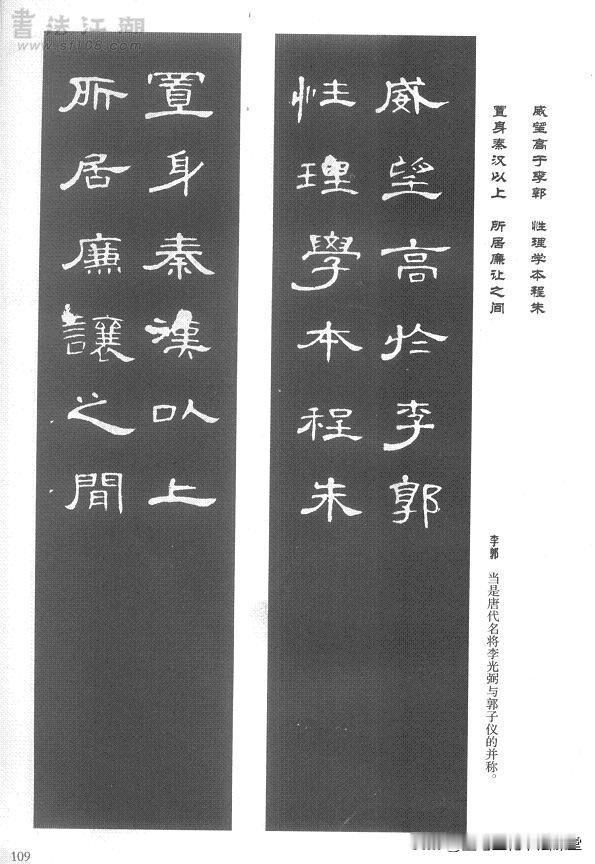 書法江湖
www.sf108.com
威望高于李郭 性理学本程朱
置身秦汉以上 所居廉让之间
威望高於李郭
性理學本程朱
置身秦漢以上
所居廉讓之間
李郭 当是唐代名将李光弼与郭子仪的并称。
109